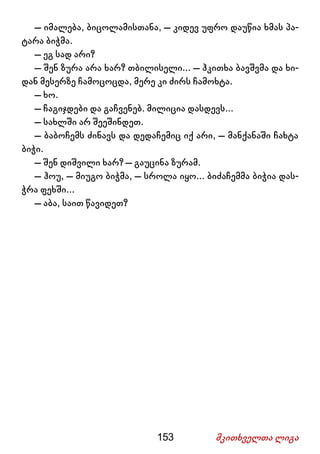 — იმალება, ბიცოლამისთანა, — კიდევ უფრო დაუწია ხმას პა-
ტარა ბიჭმა.
— ეგ სად არი?
— შენ ზურა არა ხარ? თბილისელი... — ჰკითხა ბავშვმა და ხი-
დან მესერზე ჩამოცოცდა, მერე კი ძირს ჩამოხტა.
— ხო.
— ჩაგიჯდები და გაჩვენებ. მილიცია დასდევს...
— სახლში არ შეეშინდეთ.
— ბაბოჩემს ძინავს და დედაჩემიც იქ არი, — მანქანაში ჩახტა
ბიჭი.
— შენ დიშვილი ხარ? — გაუცინა ზურამ.
— ჰოუ, — მიუგო ბიჭმა, — სროლა იყო... ბიძაჩემმა ბიჭია დას-
ჭრა ფეხში...
— აბა, საით წავიდეთ?
153 მკითხველთა ლიგა